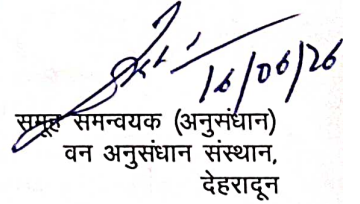 16/06/26
समूह समन्वयक (अनुसंधान)
वन अनुसंधान संस्थान,
देहरादून